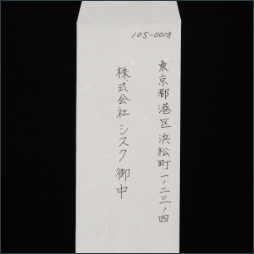 105-0013
東京都港区浜松町一ノ二三ノ四
株式会社シスク御中